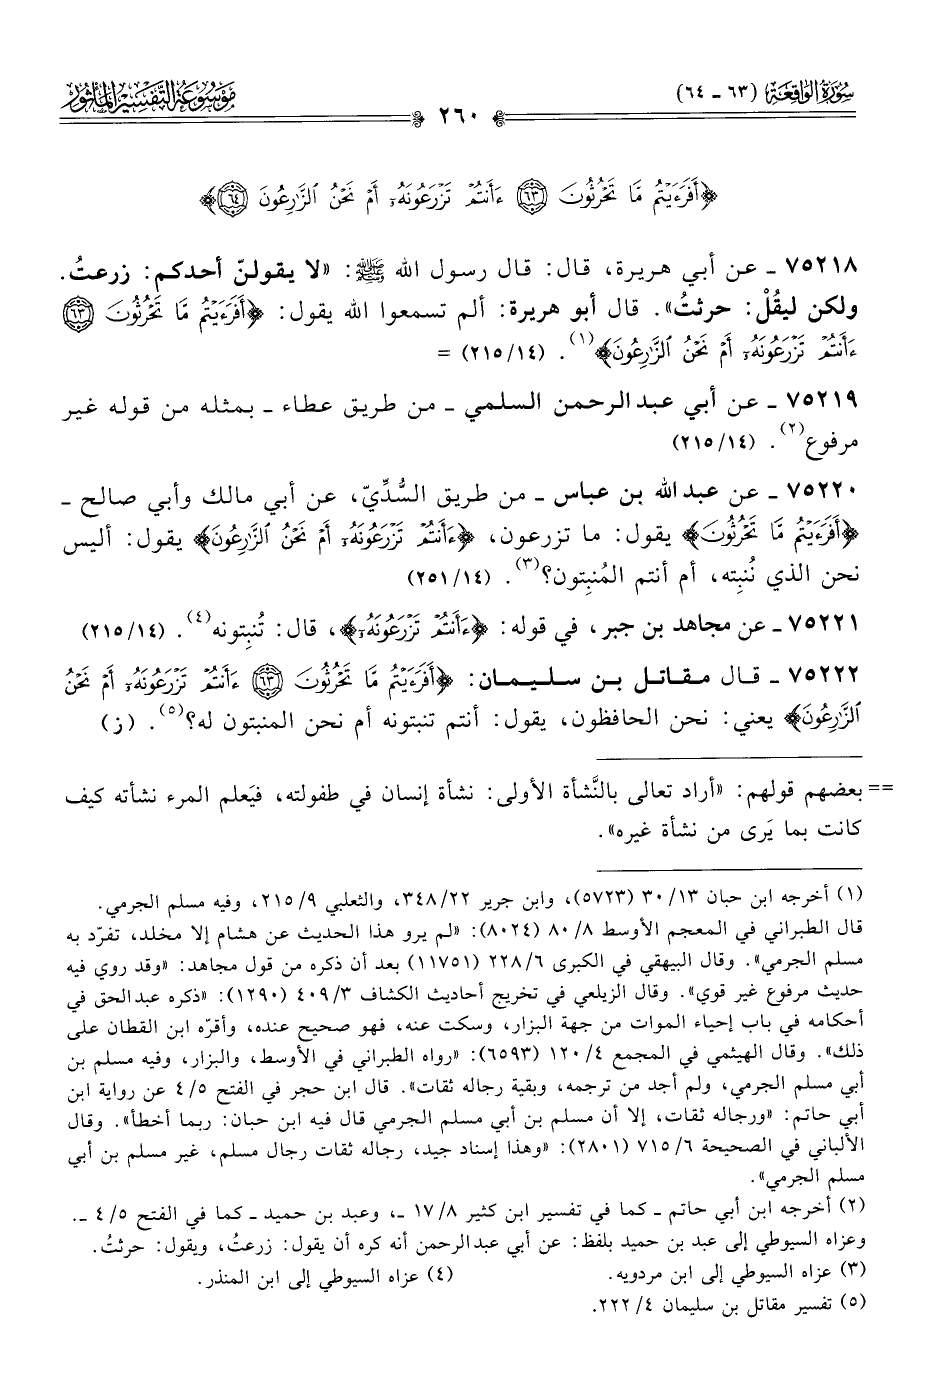 سُورَةُ الوَاقِعَةِ (٦٣ - ٦٤)
مَوْسُوعَةُ التَّفْسِيرِ المَأْثُورِ
٢٦٠
﴿أَفَرَءَيْتُم مَّا تَحْرُثُونَ ٦٣ ءَأَنتُمْ تَزْرَعُونَهُۥٓ أَمْ نَحْنُ ٱلزَّٰرِعُونَ ٦٤﴾
٧٥٢١٨ - عن أبي هريرة، قال: قال رسول الله ﷺ: «لا يقولنّ أحدكم: زرعتُ.
ولكن ليقُلْ: حرثتُ». قال أبو هريرة: ألم تسمعوا الله يقول: ﴿أَفَرَءَيْتُم مَّا تَحْرُثُونَ ٦٣
ءَأَنتُمْ تَزْرَعُونَهُۥٓ أَمْ نَحْنُ ٱلزَّٰرِعُونَ﴾(١). (٢١٥/١٤) =
٧٥٢١٩ - عن أبي عبد الرحمن السلمي - من طريق عطاء - بمثله من قوله غير
مرفوع(٢). (٢١٥/١٤)
٧٥٢٢٠ - عن عبد الله بن عباس - من طريق السُّدِّيّ، عن أبي مالك وأبي صالح -
﴿أَفَرَءَيْتُم مَّا تَحْرُثُونَ﴾ يقول: ما تزرعون، ﴿ءَأَنتُمْ تَزْرَعُونَهُۥٓ أَمْ نَحْنُ ٱلزَّٰرِعُونَ﴾ يقول: أليس
نحن الذي نُنبِته، أم أنتم المُنبِتون؟(٣). (٢٥١/١٤)
٧٥٢٢١ - عن مجاهد بن جبر، في قوله: ﴿ءَأَنتُمْ تَزْرَعُونَهُۥٓ﴾، قال: تُنبِتونه(٤). (٢١٥/١٤)
٧٥٢٢٢ - قال مقاتل بن سليمان: ﴿أَفَرَءَيْتُم مَّا تَحْرُثُونَ ٦٣ ءَأَنتُمْ تَزْرَعُونَهُۥٓ أَمْ نَحْنُ
ٱلزَّٰرِعُونَ﴾ يعني: نحن الحافظون، يقول: أنتم تنبتونه أم نحن المنبتون له؟(٥). (ز)
== بعضهم قولهم: «أراد تعالى بالنَّشأة الأولى: نشأة إنسان في طفولته، فيَعلم المرء نشأته كيف
كانت بما يَرى من نشأة غيره».
(١) أخرجه ابن حبان ١٣/ ٣٠ (٥٧٢٣)، وابن جرير ٢٢/ ٣٤٨، والثعلبي ٩/ ٢١٥، وفيه مسلم الجرمي.
قال الطبراني في المعجم الأوسط ٨/ ٨٠ (٨٠٢٤): «لم يرو هذا الحديث عن هشام إلا مخلد، تفرّد به
مسلم الجرمي». وقال البيهقي في الكبرى ٦/ ٢٢٨ (١١٧٥١) بعد أن ذكره من قول مجاهد: «وقد روي فيه
حديث مرفوع غير قوي». وقال الزيلعي في تخريج أحاديث الكشاف ٣/ ٤٠٩ (١٢٩٠): «ذكره عبد الحق في
أحكامه في باب إحياء الموات من جهة البزار، وسكت عنه، فهو صحيح عنده، وأقرّه ابن القطان على
ذلك». وقال الهيثمي في المجمع ٤/ ١٢٠ (٦٥٩٣): «رواه الطبراني في الأوسط، والبزار، وفيه مسلم بن
أبي مسلم الجرمي، ولم أجد من ترجمه، وبقية رجاله ثقات». قال ابن حجر في الفتح ٥/ ٤ عن رواية ابن
أبي حاتم: «ورجاله ثقات، إلا أن مسلم بن أبي مسلم الجرمي قال فيه ابن حبان: ربما أخطأ». وقال
الألباني في الصحيحة ٦/ ٧١٥ (٢٨٠١): «وهذا إسناد جيد، رجاله ثقات رجال مسلم، غير مسلم بن أبي
مسلم الجرمي».
(٢) أخرجه ابن أبي حاتم - كما في تفسير ابن كثير ٨/ ١٧ -، وعبد بن حميد - كما في الفتح ٥/ ٤ -.
وعزاه السيوطي إلى عبد بن حميد بلفظ: عن أبي عبد الرحمن أنه كره أن يقول: زرعتُ، ويقول: حرثتُ.
(٣) عزاه السيوطي إلى ابن مردويه. (٤) عزاه السيوطي إلى ابن المنذر.
(٥) تفسير مقاتل بن سليمان ٤/ ٢٢٢.